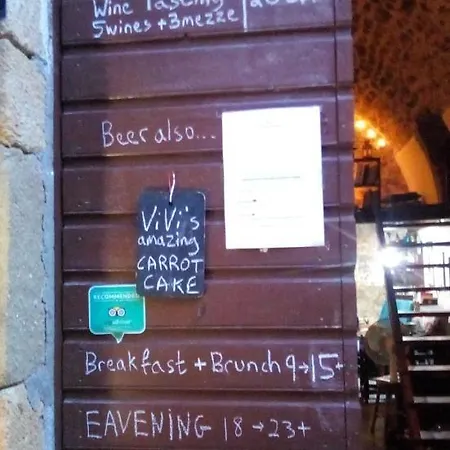 Wine Tasting
5wines + 3mezze
Beer also...
ViVi's
amazing
CARROT
CAKE
RECOMMENDED
Breakfast + Brunch 9→15+
EAVENING 18→23+